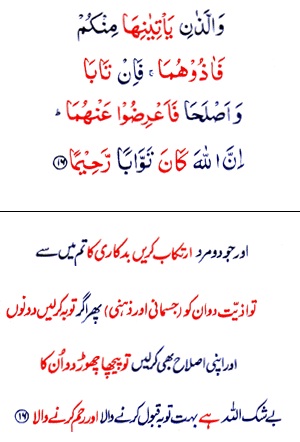 وَالَّذٰنِ يَاْتِيٰنِهَا مِنْكُمْ
فَاٰذُوْهُمَا ۚ فَاِنْ تَابَا
وَاَصْلَحَا فَاَعْرِضُوْا عَنْهُمَا ؕ
اِنَّ اللّٰهَ كَانَ تَوَّابًا رَّحِيْمًا ﴿۱۶﴾
اور جو دو مرد ارتکاب کریں بدکاری کا تم میں سے
تو اذیّت دو ان کو (جسمانی اور ذہنی) پھر اگر توبہ کرلیں دونوں
اور اپنی اصلاح بھی کرلیں تو پیچھا چھوڑ دو اُن کا
بے شک اللہ ہے بہت توبہ قبول کرنے والا اور رحم کرنے والا ﴿۱۶﴾